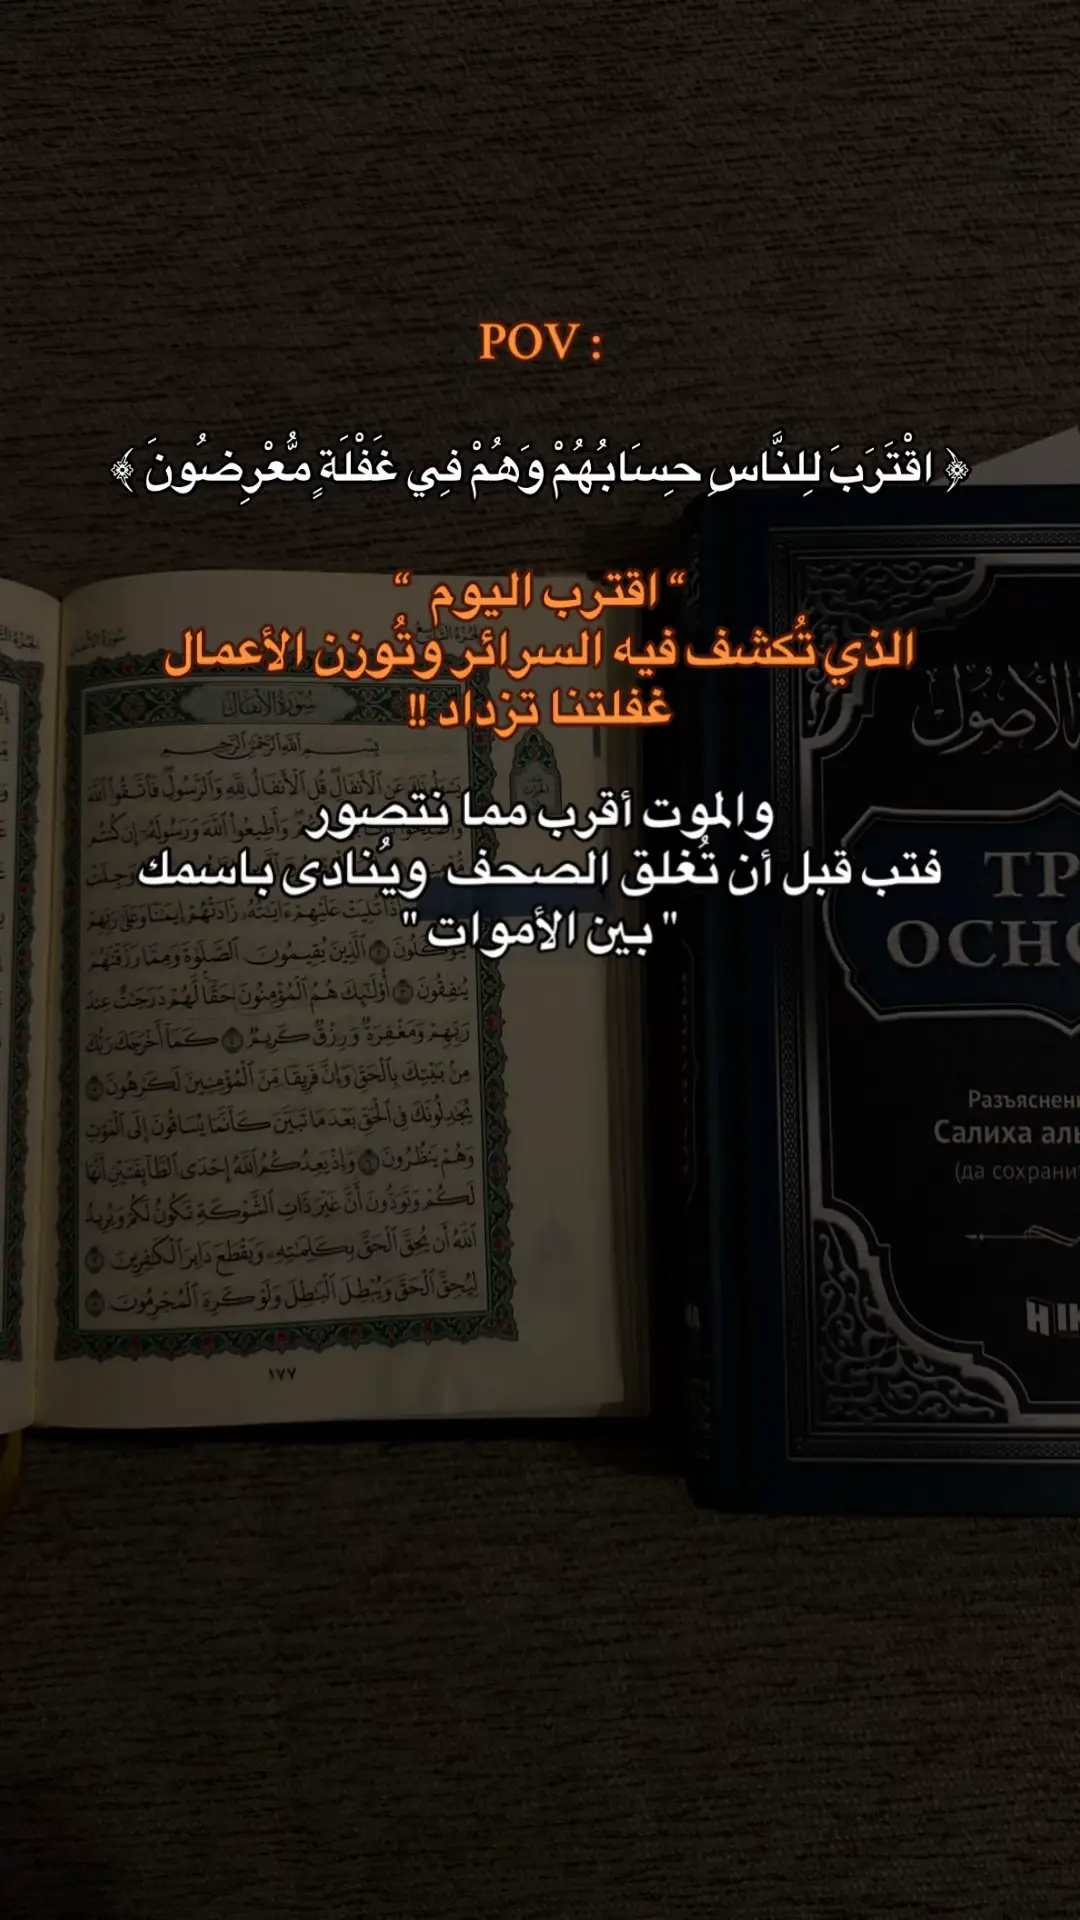 POV :
﴿ اقْتَرَبَ لِلنَّاسِ حِسَابُهُمْ وَهُمْ فِي غَفْلَةٍ مُّعْرِضُونَ ﴾
“ اقترب اليوم “
الذي تُكشف فيه السرائر وتُوزن الأعمال
غفلتنا تزداد !!
والموت أقرب مما نتصور
فتب قبل أن تُغلق الصحف ويُنادى باسمك
" بين الأموات "
سُورَةُ الأَنفَالِ
بِسْمِ اللَّهِ الرَّحْمَٰنِ الرَّحِيمِ
عَنِ ٱلْأَنفَالِ قُلِ ٱلْأَنفَالُ لِلَّهِ وَٱلرَّسُولِ فَٱتَّقُوا۟ ٱللَّهَ
وَأَطِيعُوا۟ ٱللَّهَ وَرَسُولَهُۥٓ إِن كُنتُم
تُلِيَتْ عَلَيْهِمْ ءَايَٰتُهُۥ زَادَتْهُمْ إِيمَٰنًا وَعَلَىٰ رَبِّهِمْ
يَتَوَكَّلُونَ ٢ ٱلَّذِينَ يُقِيمُونَ ٱلصَّلَوٰةَ وَمِمَّا رَزَقْنَٰهُمْ
يُنفِقُونَ ٣ أُو۟لَٰٓئِكَ هُمُ ٱلْمُؤْمِنُونَ حَقًّا لَّهُمْ دَرَجَٰتٌ عِندَ
رَبِّهِمْ وَمَغْفِرَةٌ وَرِزْقٌ كَرِيمٌ ٤ كَمَآ أَخْرَجَكَ رَبُّكَ
مِنۢ بَيْتِكَ بِٱلْحَقِّ وَإِنَّ فَرِيقًا مِّنَ ٱلْمُؤْمِنِينَ لَكَٰرِهُونَ ٥
يُجَٰدِلُونَكَ فِى ٱلْحَقِّ بَعْدَ مَا تَبَيَّنَ كَأَنَّمَا يُسَاقُونَ إِلَى ٱلْمَوْتِ
وَهُمْ يَنظُرُونَ ٦ وَإِذْ يَعِدُكُمُ ٱللَّهُ إِحْدَى ٱلطَّآئِفَتَيْنِ أَنَّهَا
لَكُمْ وَتَوَدُّونَ أَنَّ غَيْرَ ذَاتِ ٱلشَّوْكَةِ تَكُونُ لَكُمْ وَيُرِيدُ
ٱللَّهُ أَن يُحِقَّ ٱلْحَقَّ بِكَلِمَٰتِهِۦ وَيَقْطَعَ دَابِرَ ٱلْكَٰفِرِينَ ٧
لِيُحِقَّ ٱلْحَقَّ وَيُبْطِلَ ٱلْبَٰطِلَ وَلَوْ كَرِهَ ٱلْمُجْرِمُونَ ٨
١٧٧
الأصول
ТР
ОСНО
Разъяснен
Салиха аль
(да сохрани